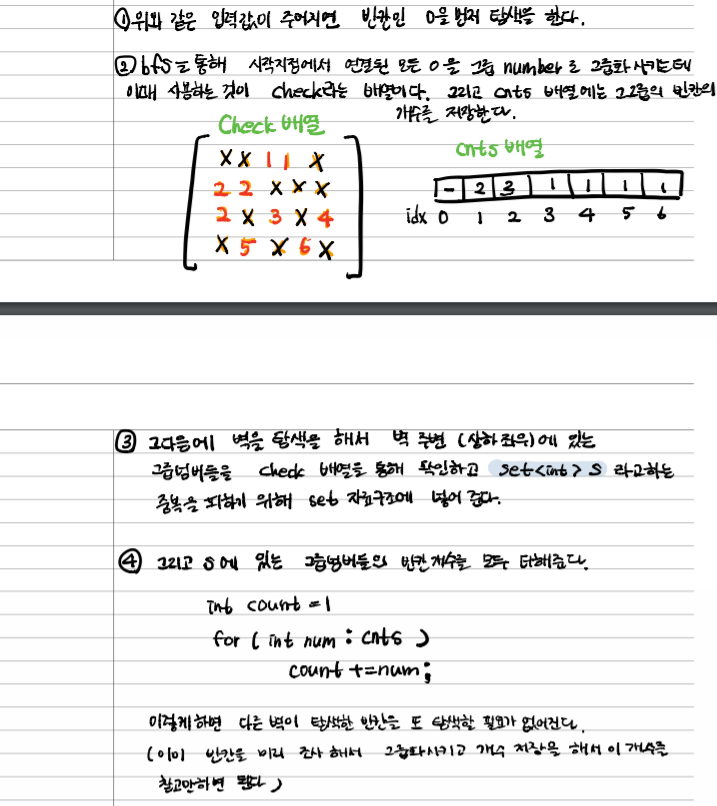 ① 위와 같은 입력값이 주어지면 빈칸인 0을 먼저 탐색을 한다.
② bfs를 통해 시작지점에서 연결된 모든 0을 그룹 number로 그룹화 시키는데
이때 사용하는 것이 check라는 배열이다. 그리고 cnts 배열에는 그 그룹의 빈칸의
개수를 저장한다.
Check 배열
X X 1 1 X
2 2 X X X
2 X 3 X 4
X 5 X 6 X
cnts 배열
- 2 3 1 1 1 1
idx 0 1 2 3 4 5 6
③ 그다음에 벽을 탐색을 해서 벽 주변 (상하좌우)에 있는
그룹넘버들을 check 배열을 통해 확인하고 set<int> S 라고하는
중복을 피하기 위해 set 자료구조에 넣어 준다.
④ 그리고 S에 있는 그룹넘버들의 빈칸 개수를 모두 더해준다.
int count = 1
for ( int num : cnts )
count += num;
이렇게하면 다른 벽이 탐색한 빈칸을 또 탐색할 필요가 없어진다.
(이미 빈칸을 미리 조사 해서 그룹화시키고 개수 저장을 해서 이 개수를
참고만하면 된다)